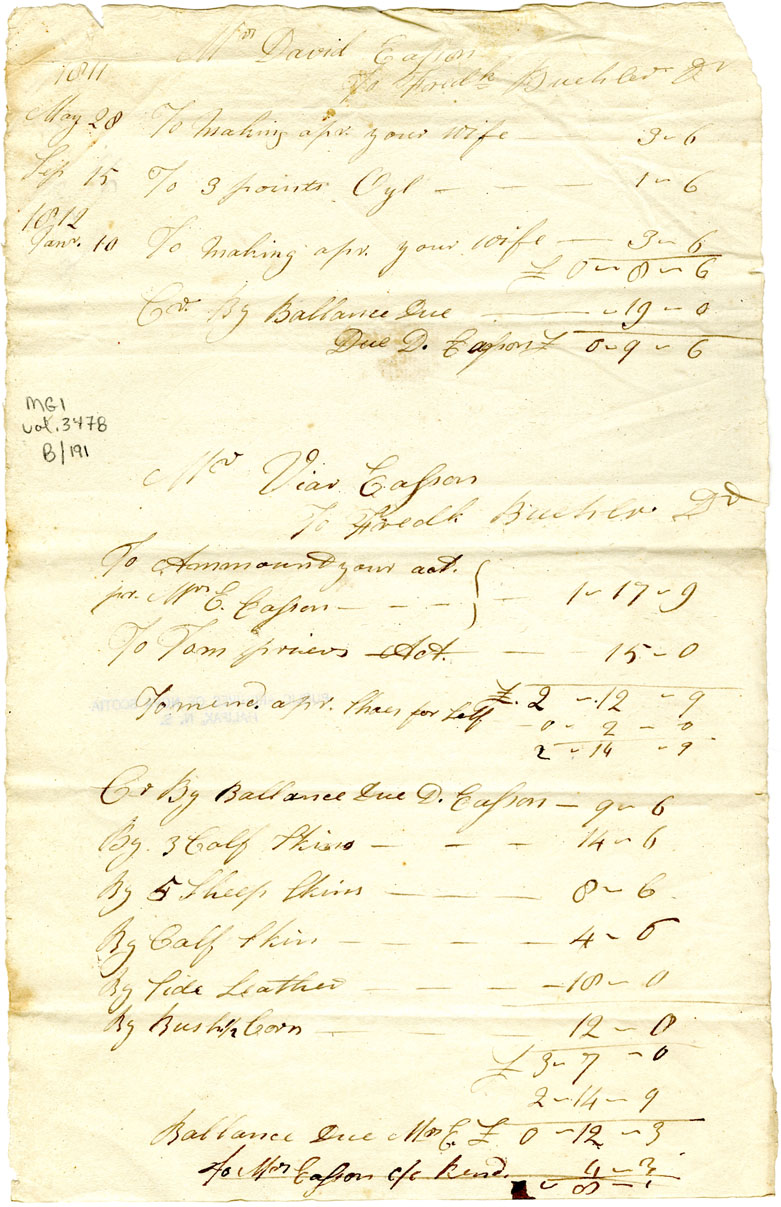 Mr David Easson
1811 To Fredk Buehler Dr
May 28 To Making a pr. your wife — — 3 ~ 6
Sep 15 To 3 points Oyl — — — 1 ~ 6
1812
Janr. 10 To Making a pr. your wife — 3 ~ 6
£ 0 ~ 8 ~ 6
Cr. By Ballance Due — ~ 19 ~ 0
Due D. Easson £ 0 ~ 9 ~ 6
MG1
vol. 3478
B/191
Mr Easson
To Fredk Buehler Dr
To Ammount your act.
pr. Mrs E. Easson — — — } — 1 ~ 17 ~ 9
To Tom Act. — — 15 ~ 0
£. 2 ~ 12 ~ 9
To mend. a pr. Shoes for Self — 0 ~ 2 ~ 0
2 ~ 14 ~ 9
Cr By Ballance Due D. Easson — 9 ~ 6
By 3 Calf Skins — — — 14 ~ 6
By 5 Sheep Skins — — — 8 ~ 6
By Calf Skin — — — — 4 ~ 6
By Side Leather — — — — 18 ~ 0
By Bush ½ Corn — — — 12 ~ 0
£ 3 ~ 7 ~ 0
2 ~ 14 ~ 9
Ballance Due Mrs E. £ 0 ~ 12 ~ 3
To Mrs Easson 4 ~ 3
PUBLIC ARCHIVES OF NOVA SCOTIA
HALIFAX, N. S.